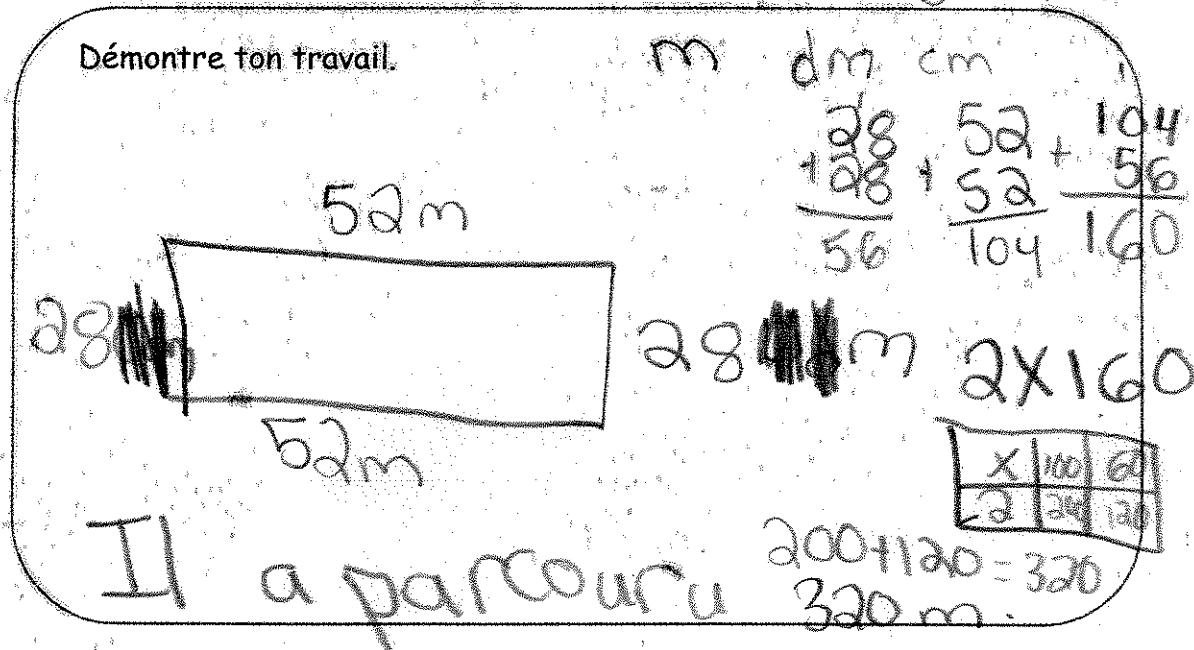 Démontre ton travail.
m dm cm
28
+28
56
52
+ 52
104
1
104
+ 56
160
52m
28 m
28 m
52m
2X160
X 100 60
2 120
200+120=320
Il a parcouru 320 m.